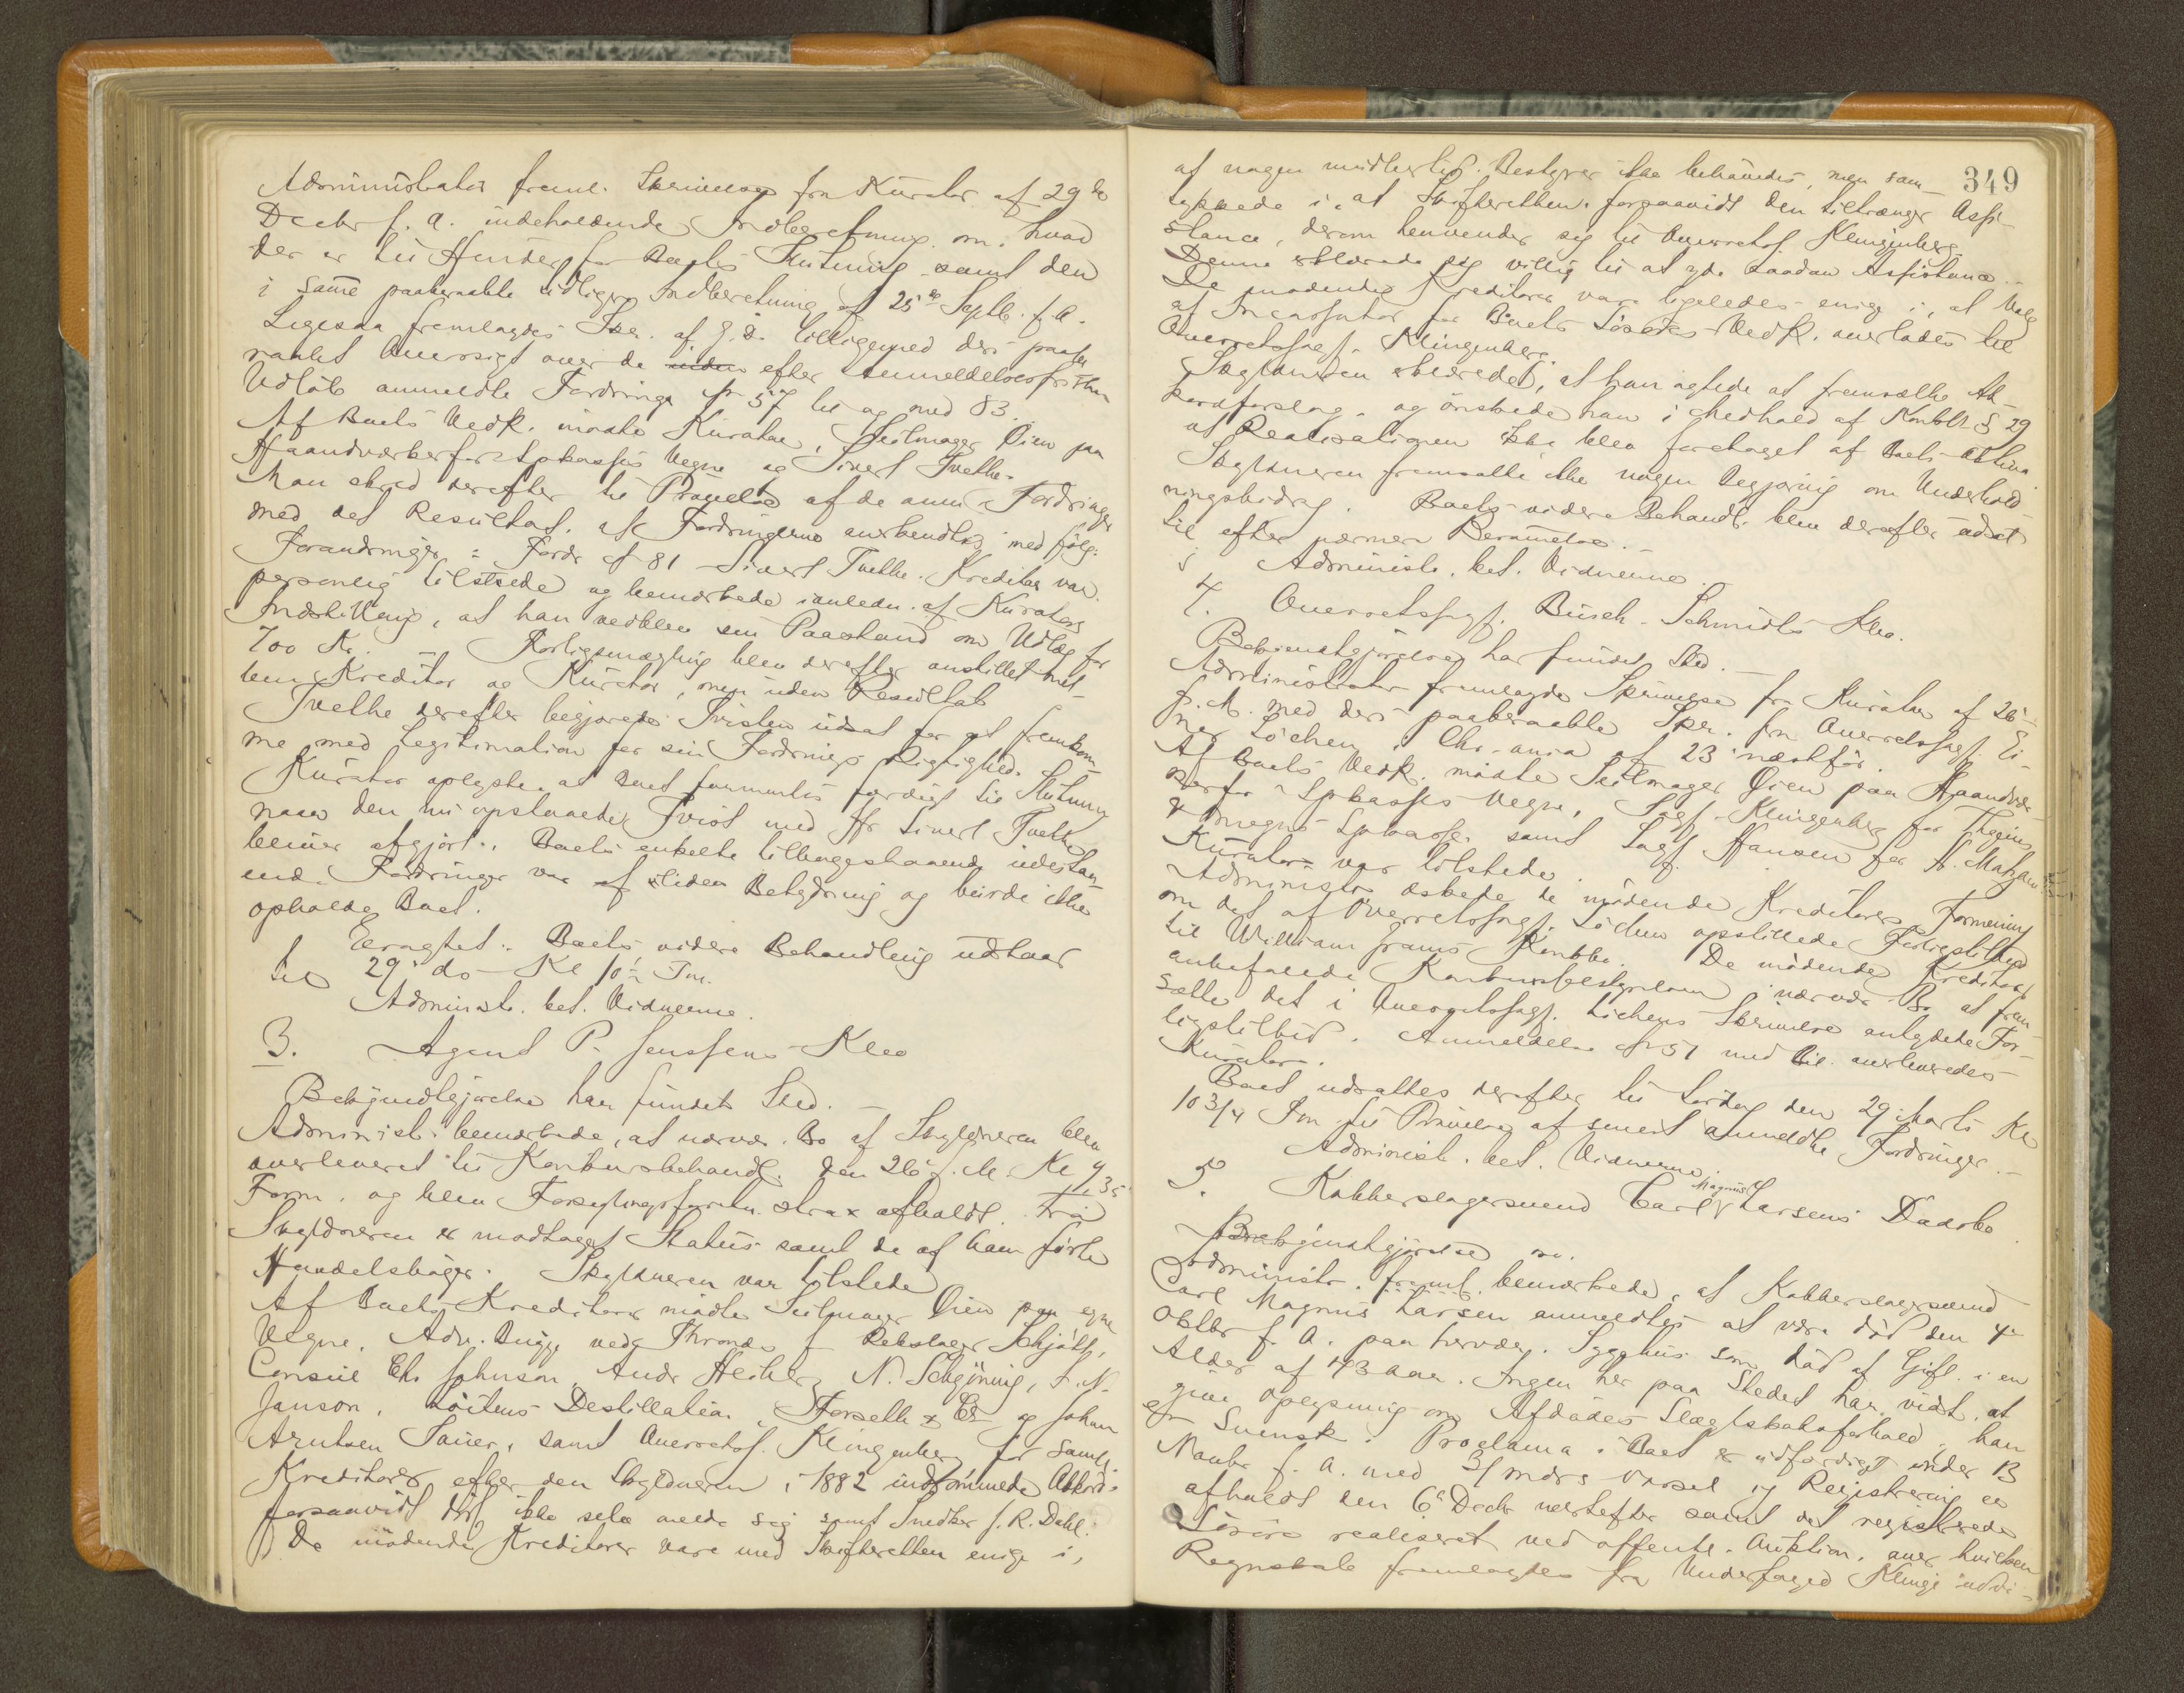 Administrator freml. Skrivelse fra Kurator af 29de
Decbr f. A. indeholdende Indberetning om, hvad
der er til Hinder for Boets Slutning samt den
i samme paaberaabte tidligere Indberetning af 25de Septb. f. A.
Ligesaa fremlagdes Skr. af g. D. tilligemed den paabe
raabte Oversigt over de uden efter Anmeldelsesfristens
Udløb anmeldte Fordringer No 57 til og med 83.
Af Boets Vedk. mødte Kurator, Seilmager Øien paa
Haandværkerfor. Spkasses Vegne og Sivert Tvethe.
Man skred derefter til Prøvelse af de anm. Fordringer
med det Resultat, at Fordringerne anerkendtes med følg.
Forandringer: Fordr No 81 Sivert Tvethe. Kreditor var
personlig tilstede og bemærkede i anledn. af Kurators
Indstilling, at han vedblev sin Paastand om Udlæg for
700 Kr. — Forligsmægling blev derefter anstillet mel-
lem Kreditor og Kurator, men uden Resultat
Tvethe derefter begjærede Tvisten udsat for at fremkom-
me med Legitimation for sin Fordrings Rigtighed.
Kurator oplyste, at Boet formentes færdigt til Slutning
naar den nu opstaaede Tvist med Hr Sivert Tvethe
bliver afgjort. Boets enkelte tilbagestaaende udestaa-
ende Fordringer var af liden Betydning og burde ikke
opholde Boet.
Eragtet: Boets videre Behandling udstaar
til 29' ds Kl 10½ Fm.
Administr. bet. Vidnerne.
3. Agent P. Jenssens Kbo
Bekjendtgjørelse har fundet Sted. —
Administ. bemærkede, at nærvær. Bo af Skyldneren blev
overleveret til Konkursbehandl. den 26' f. M. Kl 9,35
Form. og blev Forseglingsforretn. strax afholdt. Fra
Skyldneren er modtaget Status samt de af ham førte
Handelsbøger. Skyldneren var tilstede
Af Boets Kreditorer mødte Seilmager Øien paa egne
Vegne, Adv. Bugge vedg Throndhj. Rebslager Schjøtt,
Consul Chr Johnson, Andr Heiberg, N. Schjöning, F. N.
Janson, Løitens Destillation, Forsell & Co og Johan
Arntsen Sauer, samt Overretssf. Klingenberg for samtl.
Kreditorer efter den Skyldneren i 1882 indrømmede Akkord
forsaavidt disse ikke selv melde sig samt Snedker J. R. Dahl.
De mødende Kreditorer vare med Skifteretten enige i,
349
at nogen midlertid. Bestyrer ikke behøvedes, men sam-
tykkede i, at Skifteretten, forsaavidt den tiltrænger Assi-
stance, derom henvender sig til Overretssf. Klingenberg.
Denne erklærede sig villig til at yde saadan Assistance.
De mødende Kreditorer vare ligeledes enig i, at Valg
af Incassator for Boets Løsøres Vedk. overlodes til
Overretssagf. Klingenberg.
Skyldneren erklærede, at han agtede at fremsætte Ak-
kordforslag, og ønskede han i Medhold af Konkl. § 29
at Realisationen ikke blev foretaget af Boets Aktiva
Skyldneren fremsatte ikke nogen Begjæring om Underhold-
ningsbidrag. Boets videre Behandl. blev derefter udsat
til efter nærmere Berammelse. —
Administr. bet. Vidnerne.
4. Overretssagf. Busch-Schmidts Kbo.
Bekjendtgjørelse har fundet Sted. —
Administrator fremlagde Skrivelse fra Kurator af 26'
f. M. med deri paaberaabte Skr. fra Overretssagf. Ei-
nar Løchen i Chr.ania af 23' næstfør.
Af Boets Vedk. mødte Seilmager Øien paa Haandvær-
kerfor. Spkasses Vegne, Sagf. Klingenberg for Thjems
& Omegns Spkasse samt Sagf. Hansen for A. Matzow
Kurator var tilstede.
Administr. æskede de mødende Kreditorers Formening
om det af Overretssagf. Løchen opstillede Forligstilbud
til William Frams Konkbo. De mødende Kreditorer
anbefalede Konkursbestyrelsen i nærvær. Bo at frem-
sætte det i Overretssagf. Løchens Skrivelse antydede For-
ligstilbud. Anmeldelse No 51 med Bil. overleveredes
Kurator.
Boet udsattes derefter til Lørdag den 29 Marts Kl
10 3/4 Fm til Prøvelse af senest anmeldte Fordringer. —
Administ. bet. Vidnerne.
5. Kobberslagersvend Carl Magnus Larsens Dødsbo.
Bekjendtgjørelse m.
Administr. fremt. bemærkede, at Kobberslagersvend
Carl Magnus Larsen anmeldtes at være død den 4de
Oktbr f. A. paa herværd. Sygehus som død af Gift i en
Alder af 43 Aar. Ingen her paa Stedet har vidst at
give Oplysning om Afdødes Slægtskabsforhold, han
er Svensk. Proclama i Boet er udfærdiget under 13
Novbr f. A. med 3 Mdrs Varsel og Registrering er
afholdt den 6' Decbr nestefter samt det registrerede
Løsøre realiseret ved offentl. Auktion, over hvilken
Regnskab fremlagdes fra Underfoged Klinge udvi-